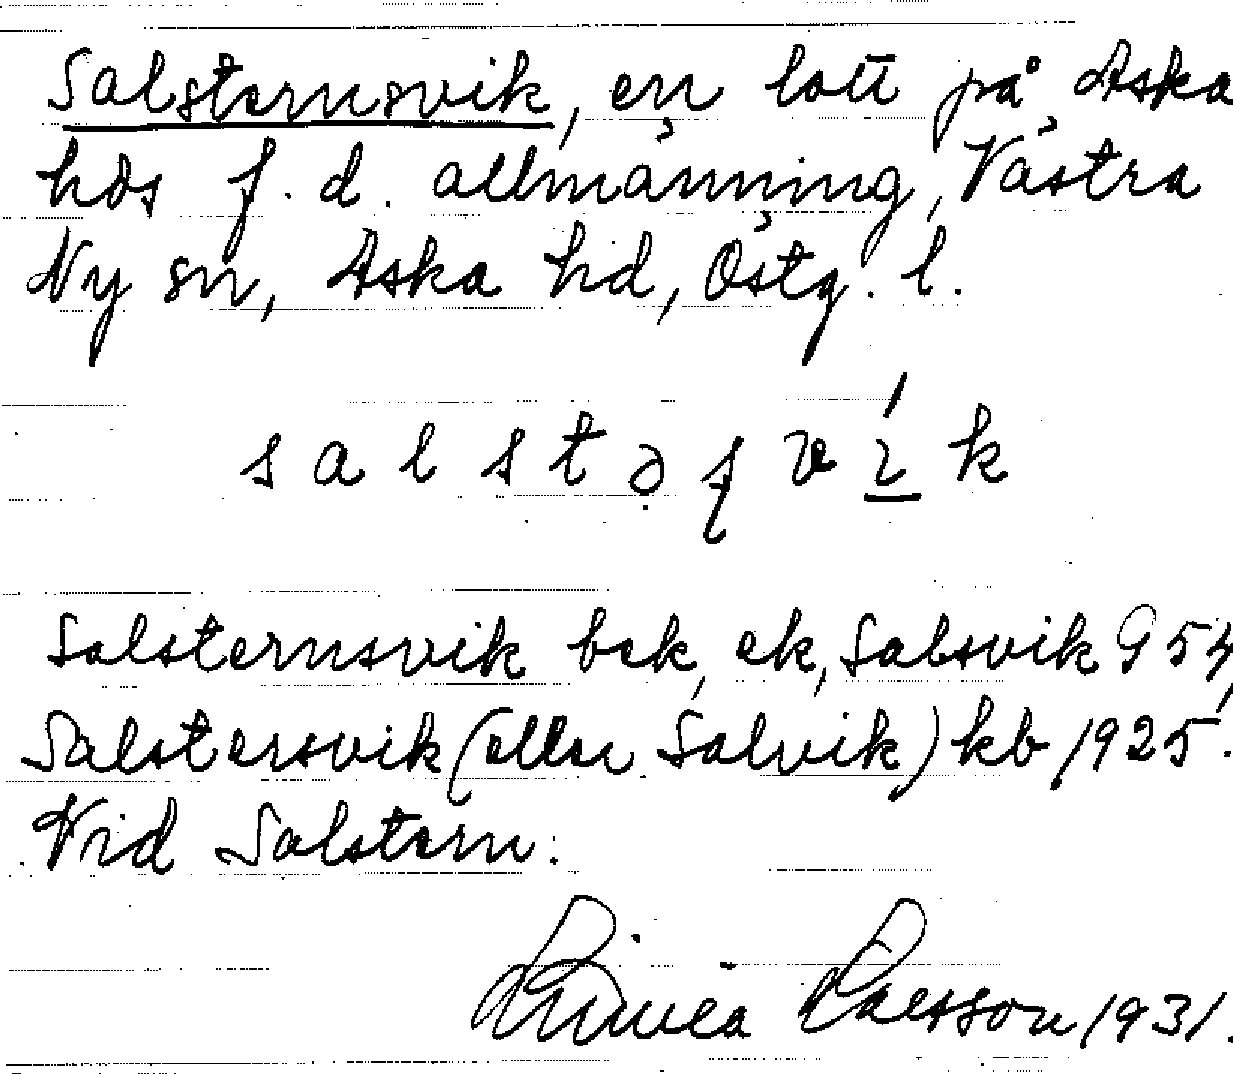 Salsternsvik, en lott på Aska
hds f. d. allmänning, Västra
Ny sn, Aska hd, Östg. l.
salstəʂvík
Salsternsvik bek, ek, Salsvik G 54,
Salstersvik (eller Salvik) kb 1925.
Vid Salstern.
Linnea Larsson 1931.